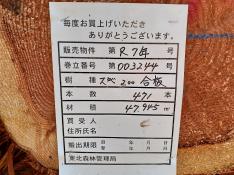 毎度お買上げいただき
ありがとうございます。
販売物件 第 R7年 号
巻立番号 第003244号
樹種 スギ 2.00 合板
本数 471本
材積 47.945㎥
買受人
住所氏名
搬出期限 自 年 月 日
至 年 月 日
東北森林管理局